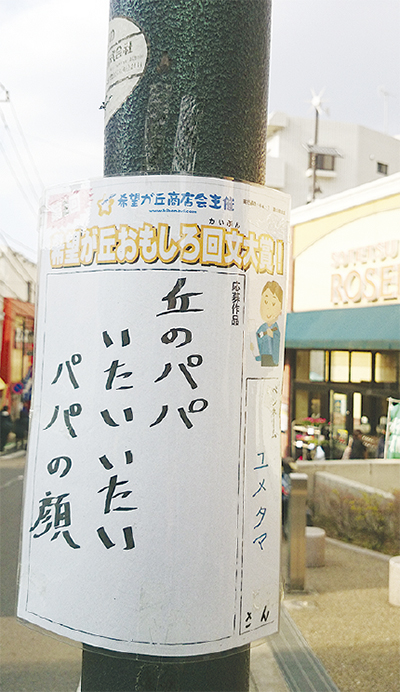 式会社
希望が丘商店会主催
かいぶん
希望が丘おもしろ回文大賞!
応募作品
丘のパパ
いたいいたい
パパの顔
ペンネーム
ユメタマ
さん
ROSE